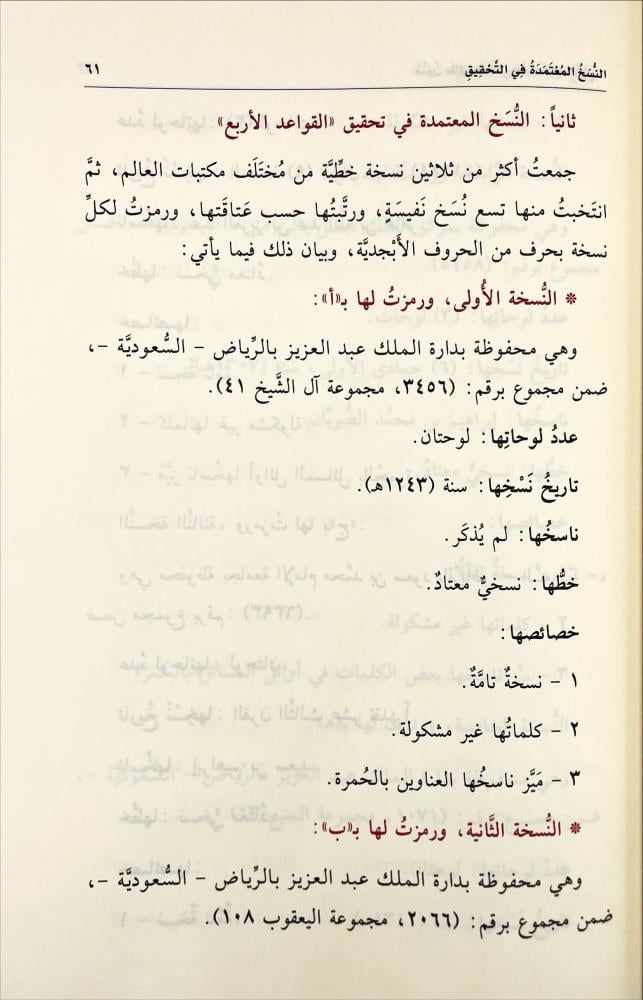 النُّسَخُ المُعْتَمَدَةُ فِي التَّحْقِيقِ ٦١
ثانياً: النُّسَخ المعتمدة في تحقيق «القواعد الأربع»
جمعتُ أكثر من ثلاثين نسخة خطِّيَّة من مُختَلَف مكتبات العالم، ثمَّ
انتَخبتُ منها تسع نُسَخ نَفيسَةٍ، ورتَّبتُها حسب عَتاقَتها، ورمزتُ لكلِّ
نسخة بحرف من الحروف الأَبْجديَّة، وبيان ذلك فيما يأتي:
* النُّسخة الأُولى، ورمزتُ لها بـ«أ»:
وهي محفوظة بدارة الملك عبد العزيز بالرِّياض – السُّعوديَّة –،
ضمن مجموع برقم: (٣٤٥٦، مجموعة آل الشَّيخ ٤١).
عددُ لوحاتِها: لوحتان.
تاريخُ نَسْخِها: سنة (١٢٤٣هـ).
ناسخُها: لم يُذكَر.
خطُّها: نسخيٌّ معتادٌ.
خصائصها:
١ – نسخةٌ تامَّةٌ.
٢ – كلماتُها غير مشكولة.
٣ – مَيَّز ناسخُها العناوين بالحُمرة.
* النُّسخة الثَّانية، ورمزتُ لها بـ«ب»:
وهي محفوظة بدارة الملك عبد العزيز بالرِّياض – السُّعوديَّة –،
ضمن مجموع برقم: (٢٠٦٦، مجموعة اليعقوب ١٠٨).